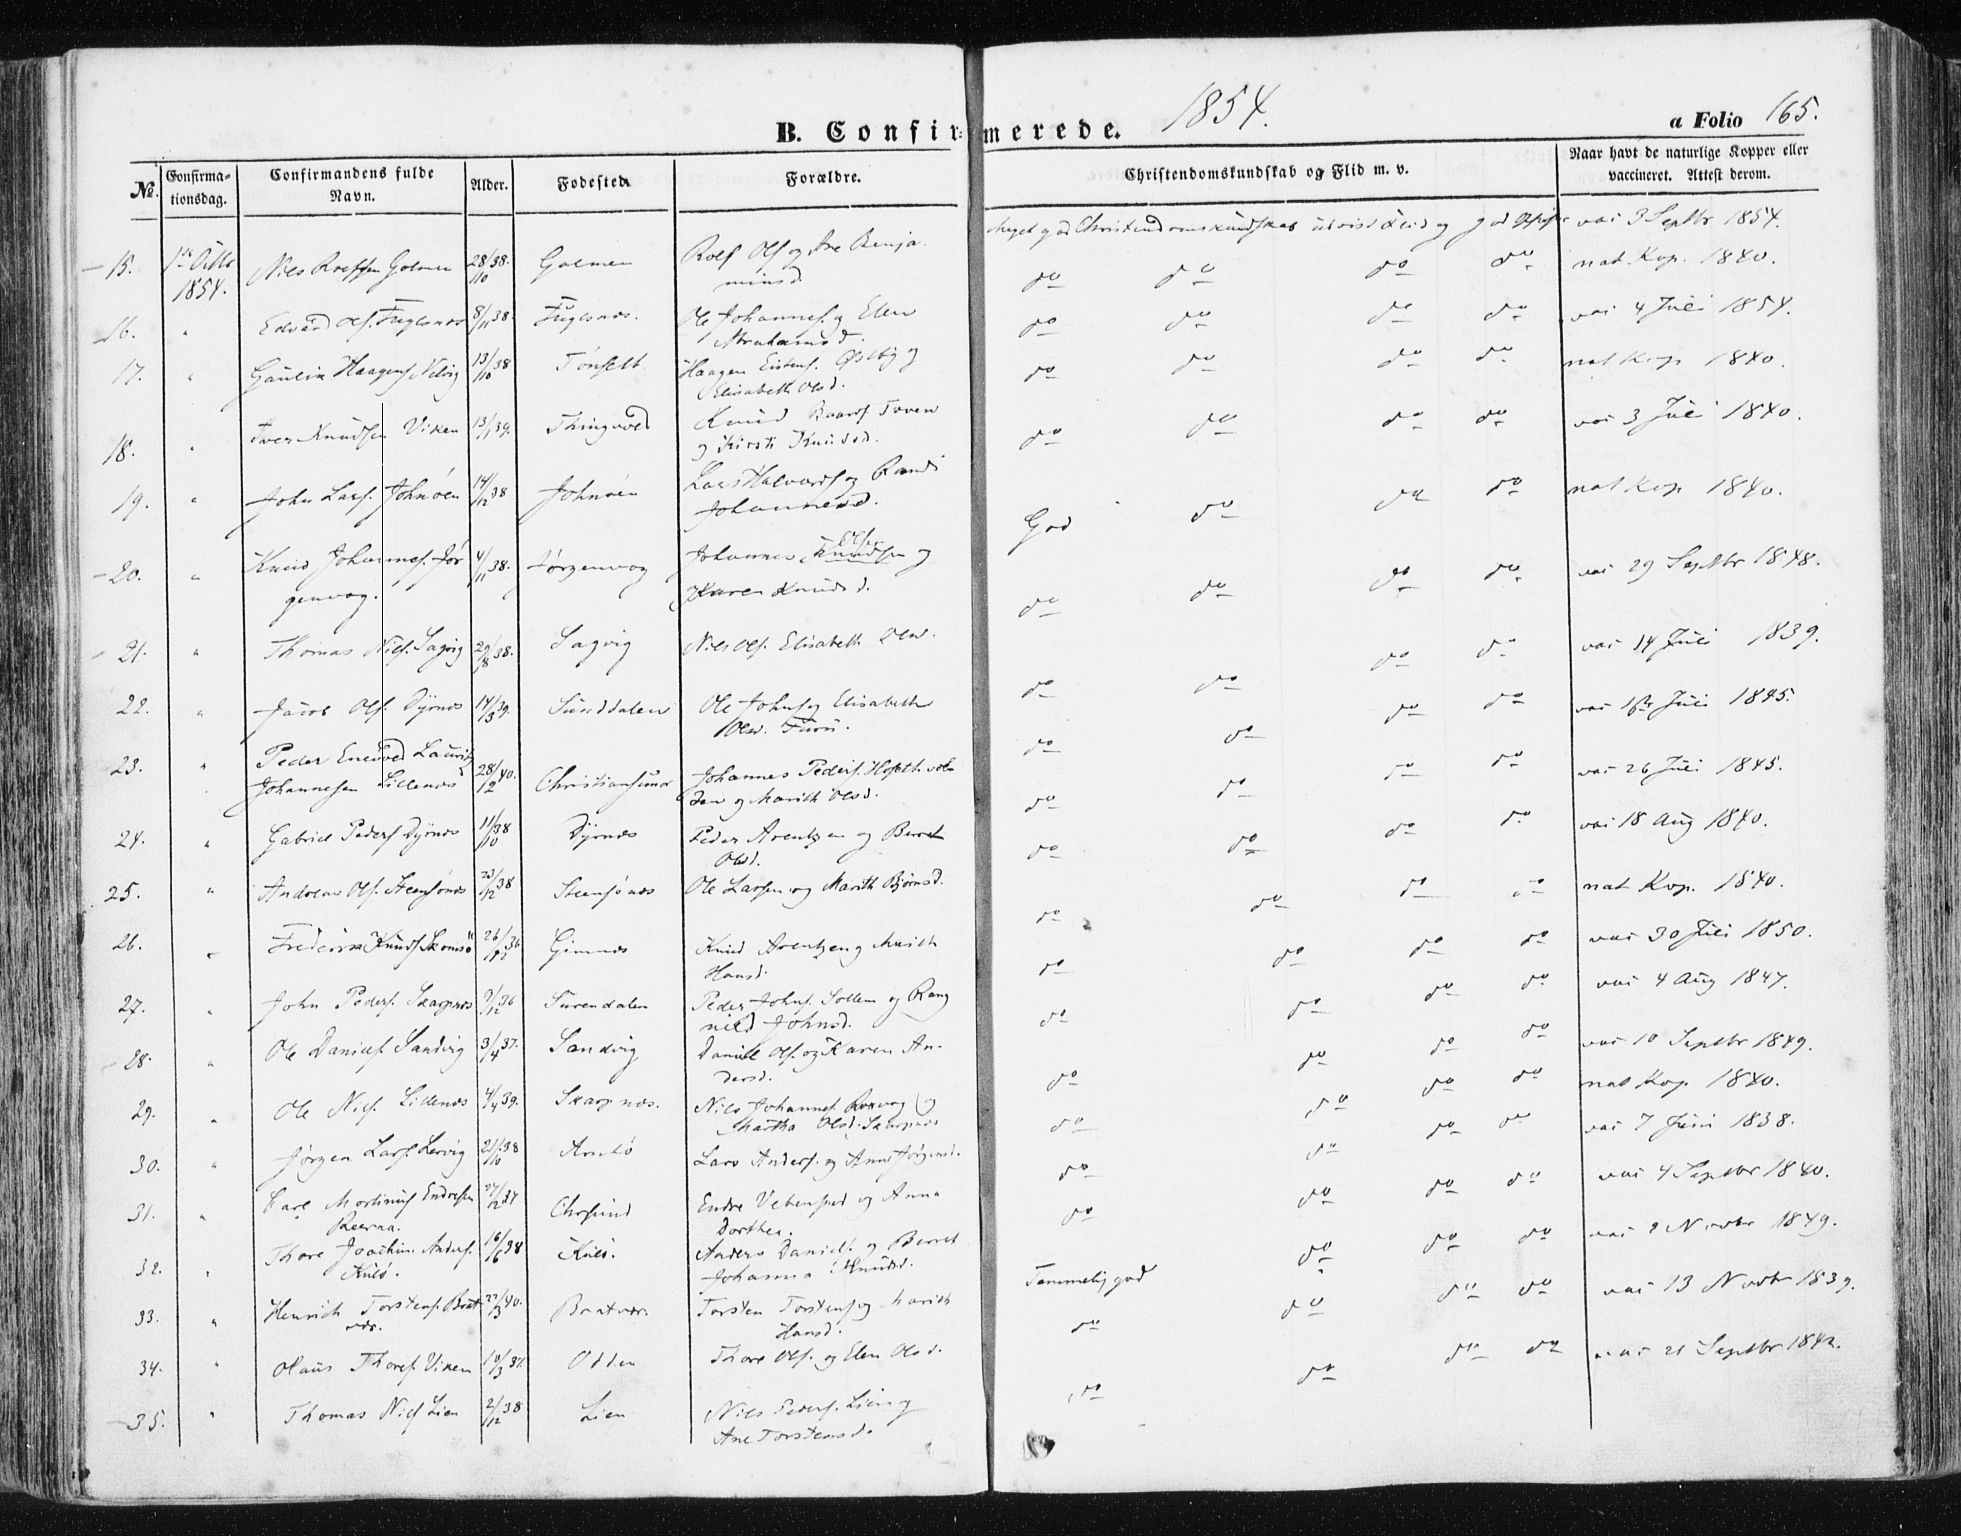 1854.
B. Confirmerede.
a Folio 165.
No.
Confirmationsdag.
Confirmandens fulde Navn.
Alder.
Fødested.
Forældre.
Christendomskundskab og Flid m. v.
Naar havt de naturlige Kopper eller vaccineret. Attest derom.
15. 1ste Octbr 1854. Nils Golmen 28/10 38. Golmen Rolf Ols og Ane Benja- minsd. Meget god Christendomskundskab udvist Flid og god vac 3 Septbr 1854.
16. " Edvard Ols. Fuglsnæs 8/11 38. Fuglsnæs. Ole Johannes. og Elen Abrahamsd. do do do do nat Kop. 1840.
17. " Haagens. 13/10 38 Tønsett Haagen Østby og Elisabeth Olsd. do do do do vac 4 Juli 1854.
18. " Iver Knudsen Viken 13/11 39. Thingvold Knud Baards Tven og Kirsti Knudsd. do do do do nat Kop 1840.
19. " John Lars. Johnøen 14/12 38 Johnøen Lars Halvards og Randi Johannesd. do do do do vac 3 Juli 1840.
20. " Knud Johannes. Jørgenvog. 4/11 38. Jørgenvog Johannes Knudsen og Karen Knudsd. God do do do nat Kop 1840.
21. " Thomas Nils. Sagvig 29/8 38. Sagvig Nils Ols. Elisabeth Olsd. do do do do vac 29 Septbr 1848.
22. " Jacob Ols. Dyrnæs 14/3 39. Sunddalen Ole Johns og Elisabeth Olsd. Furu. do do do do vac 14 Juli 1839.
23. " Peder Enevold Lauritz Johannesen Lillenæs 28/12 40. Christiansund Johannes Peders. og Marith Olsd. do do do do vac Juli 1845.
24. " Gabriel Peders Dyrnæs 11/10 38 Dyrnæs Peder Arentzen og Beret Olsd. do do do do vac 26 Juli 1845.
25. " Andreas Ols. Steensønæs 23/12 38 Steensønæs Ole Larsen og Marith Bjørnsd. do do do do vac 18 Aug 1840.
26. " Frederik Knuds 26/12 36 Gimnæs Knud Arentzen og Marith Hansd. do do do do nat Kop. 1840.
27. " John Peders. Skarpnæs 9/12 36 Surendalen Peder Johns. Sollem og Rang nild Johnsd. do do do do vac 30 Juli 1850.
28. " Ole Daniels. Sandvig 3/4 37. Sandvig Daniel Ols. og Karen An- dersd. do do do do vac 4 Aug 1847.
29. " Ole Nils. Lillenæs 4/4 39. Skarpnæs. Nils Johannes. og Martha Olsd. Skarpnæs do do do do vac 10 Septbr 1849.
30. " Jørgen Lars. Lervig 21/10 38 Arntø Lars Anders. og Anne Jørgensd. do do do do nat Kop. 1840.
31. " Carl Martinus Endresen 27/12 37 Chrsund Endre og Anna Dorthea. do do do do vac 7 Juni 1838.
32. " Thore Joachim Anders. Kulø. 16/6 38 Kulø. Anders Daniels. og Beret Johanna Knudsd. do do do do vac 4 Septbr 1840.
33. " Henrich Torstens. Brat- vær. 22/3 40. Bratvær. Torsten Torstens og Marith Hansd. Temmelig god do do do vac 2 Novbr 1849.
34. " Olaus Thores. Viken 10/3 37. Odden Thore Ols. og Elen Olsd. do do do do vac 13 Novbr 1839.
35. " Thomas Nils Lien 2/12 38 Lien Nils Peders. Lien og Ane Torstensd. do do do do vac 21 Septbr 1842.